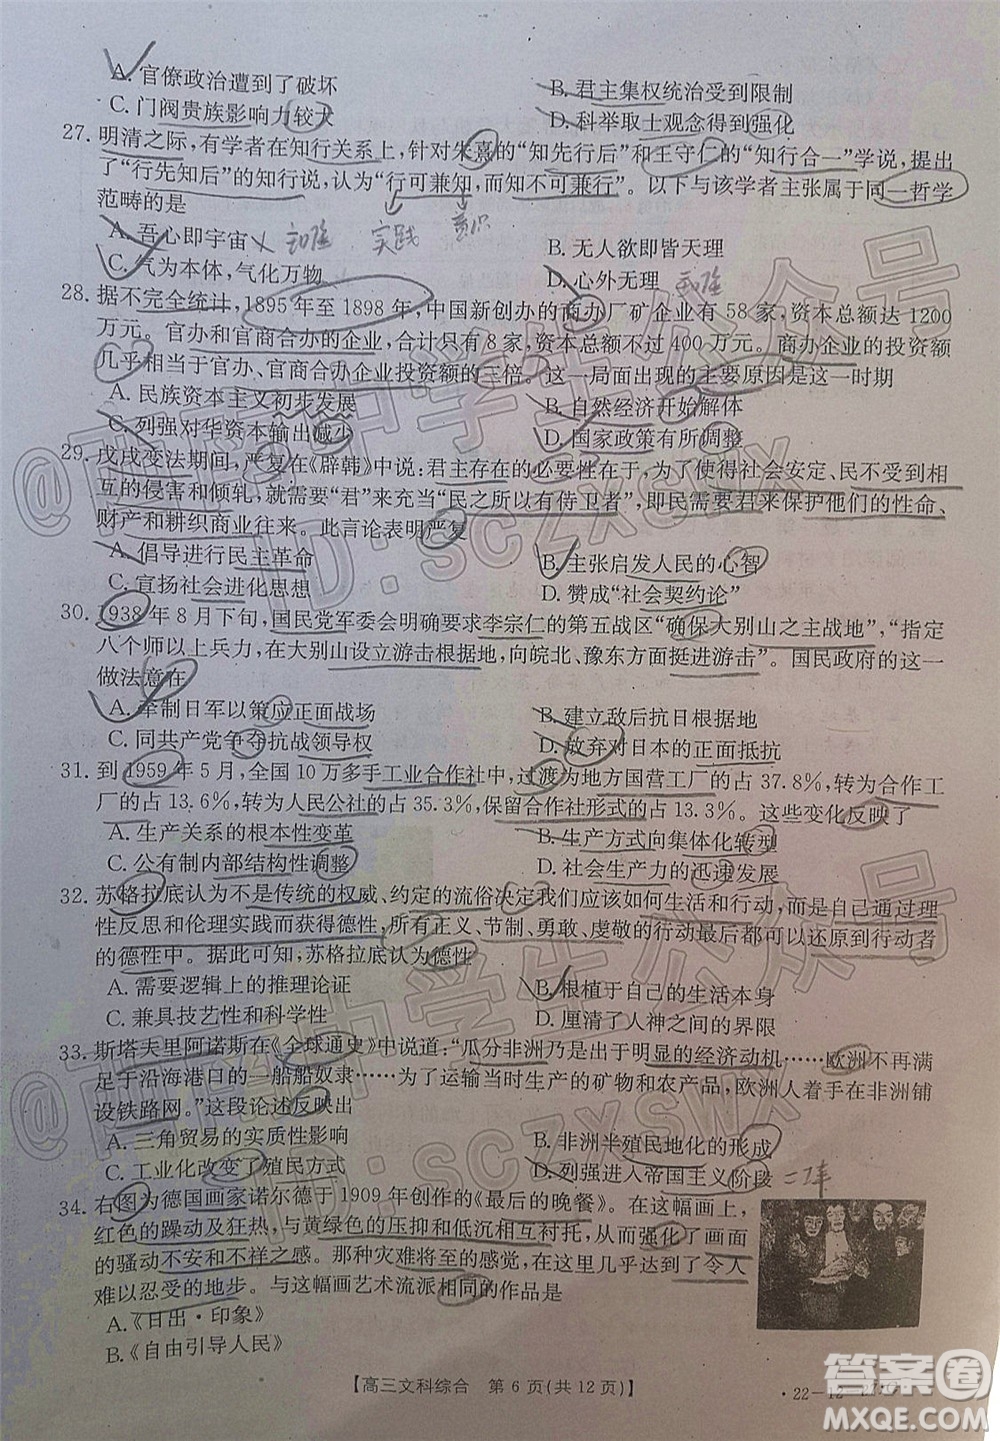 A. 官僚政治遭到了破坏
B. 君主集权统治受到限制
C. 门阀贵族影响力较大
D. 科举取士观念得到强化
27. 明清之际,有学者在知行关系上,针对朱熹的“知先行后”和王守仁的“知行合一”学说,提出
了“行先知后”的知行观,认为“行可兼知,而知不可兼行”。以下与该学者主张属于同一哲学
范畴的是
实践
意识
A. 吾心即宇宙
B. 无人欲即皆天理
C. 气为本体,气化万物
D. 心外无理
28. 据不完全统计,1895 年至 1898 年,中国新创办的商办厂矿企业有 58 家,资本总额达 1200
万元。官办和官商合办的企业,合计只有 8 家,资本总额不过 400 万元。商办企业的投资额
几乎相当于官办、官商合办企业投资额的三倍。这一局面出现的主要原因是这一时期
A. 民族资本主义初步发展
B. 自然经济开始解体
C. 列强对华资本输出减少
D. 国家政策有所调整
29. 戊戌变法期间,严复在《辟韩》中说:君主存在的必要性在于,为了使得社会安定、民不受到相
互的侵害和倾轧,就需要“君”来充当“民之所以有待卫者”,即民需要君来保护他们的性命、
财产和耕织商业往来。此言论表明严复
A. 倡导进行民主革命
B. 主张启发人民的心智
C. 宣扬社会进化思想
D. 赞成“社会契约论”
30. 1938 年 8 月下旬,国民党军委会明确要求李宗仁的第五战区“确保大别山之主战地”,“指定
八个师以上兵力,在大别山设立游击根据地,向皖北、豫东方面挺进游击”。国民政府的这一
做法意在
A. 牵制日军以策应正面战场
B. 建立敌后抗日根据地
C. 同共产党争夺抗战领导权
D. 放弃对日本的正面抵抗
31. 到 1959 年 5 月,全国 10 万多手工业合作社中,过渡为地方国营工厂的占 37.8%,转为合作工厂
的占 13.6%,转为人民公社的占 35.3%,保留合作社形式的占 13.3%。这些变化反映了
A. 生产关系的根本性变革
B. 生产方式向集体化转型
C. 公有制内部结构性调整
D. 社会生产力的迅速发展
32. 苏格拉底认为不是传统的权威、约定的流俗决定我们应该如何生活和行动,而是自己通过理
性反思和伦理实践而获得的德性,所有正义、节制、勇敢、虔敬的行动最后都可以还原到行动者
的德性中。据此可知,苏格拉底认为德性
A. 需要逻辑上的推理论证
B. 根植于自己的生活本身
C. 兼具技艺性和科学性
D. 厘清了人神之间的界限
33. 斯塔夫里阿诺斯在《全球通史》中说道:“瓜分非洲乃是出于明显的经济动机……欧洲不再满
足于沿海港口的一船船奴隶……为了运输当时生产的矿物和农产品,欧洲人着手在非洲铺
设铁路网。”这段论述反映出
A. 三角贸易的实质性影响
B. 非洲半殖民地化的形成
C. 工业化改变了殖民方式
D. 列强进入帝国主义阶段
34. 右图为德国画家诺尔德于 1909 年创作的《最后的晚餐》。在这幅画上,
红色的躁动及狂热,与黄绿色的压抑和低沉相互衬托,从而强化了画面
的骚动不安和不祥之感。那种灾难将至的感觉,在这里几乎达到了令人
难以忍受的地步。与这幅画艺术流派相同的作品是
A.《日出·印象》
B.《自由引导人民》
【高三文科综合 第 6 页(共 12 页)】
·22-12
@西南中学生公众号
ID:SCZXSWX
@西南中学生公众号
ID:SCZXSWX
答案圈
MXQE.COM